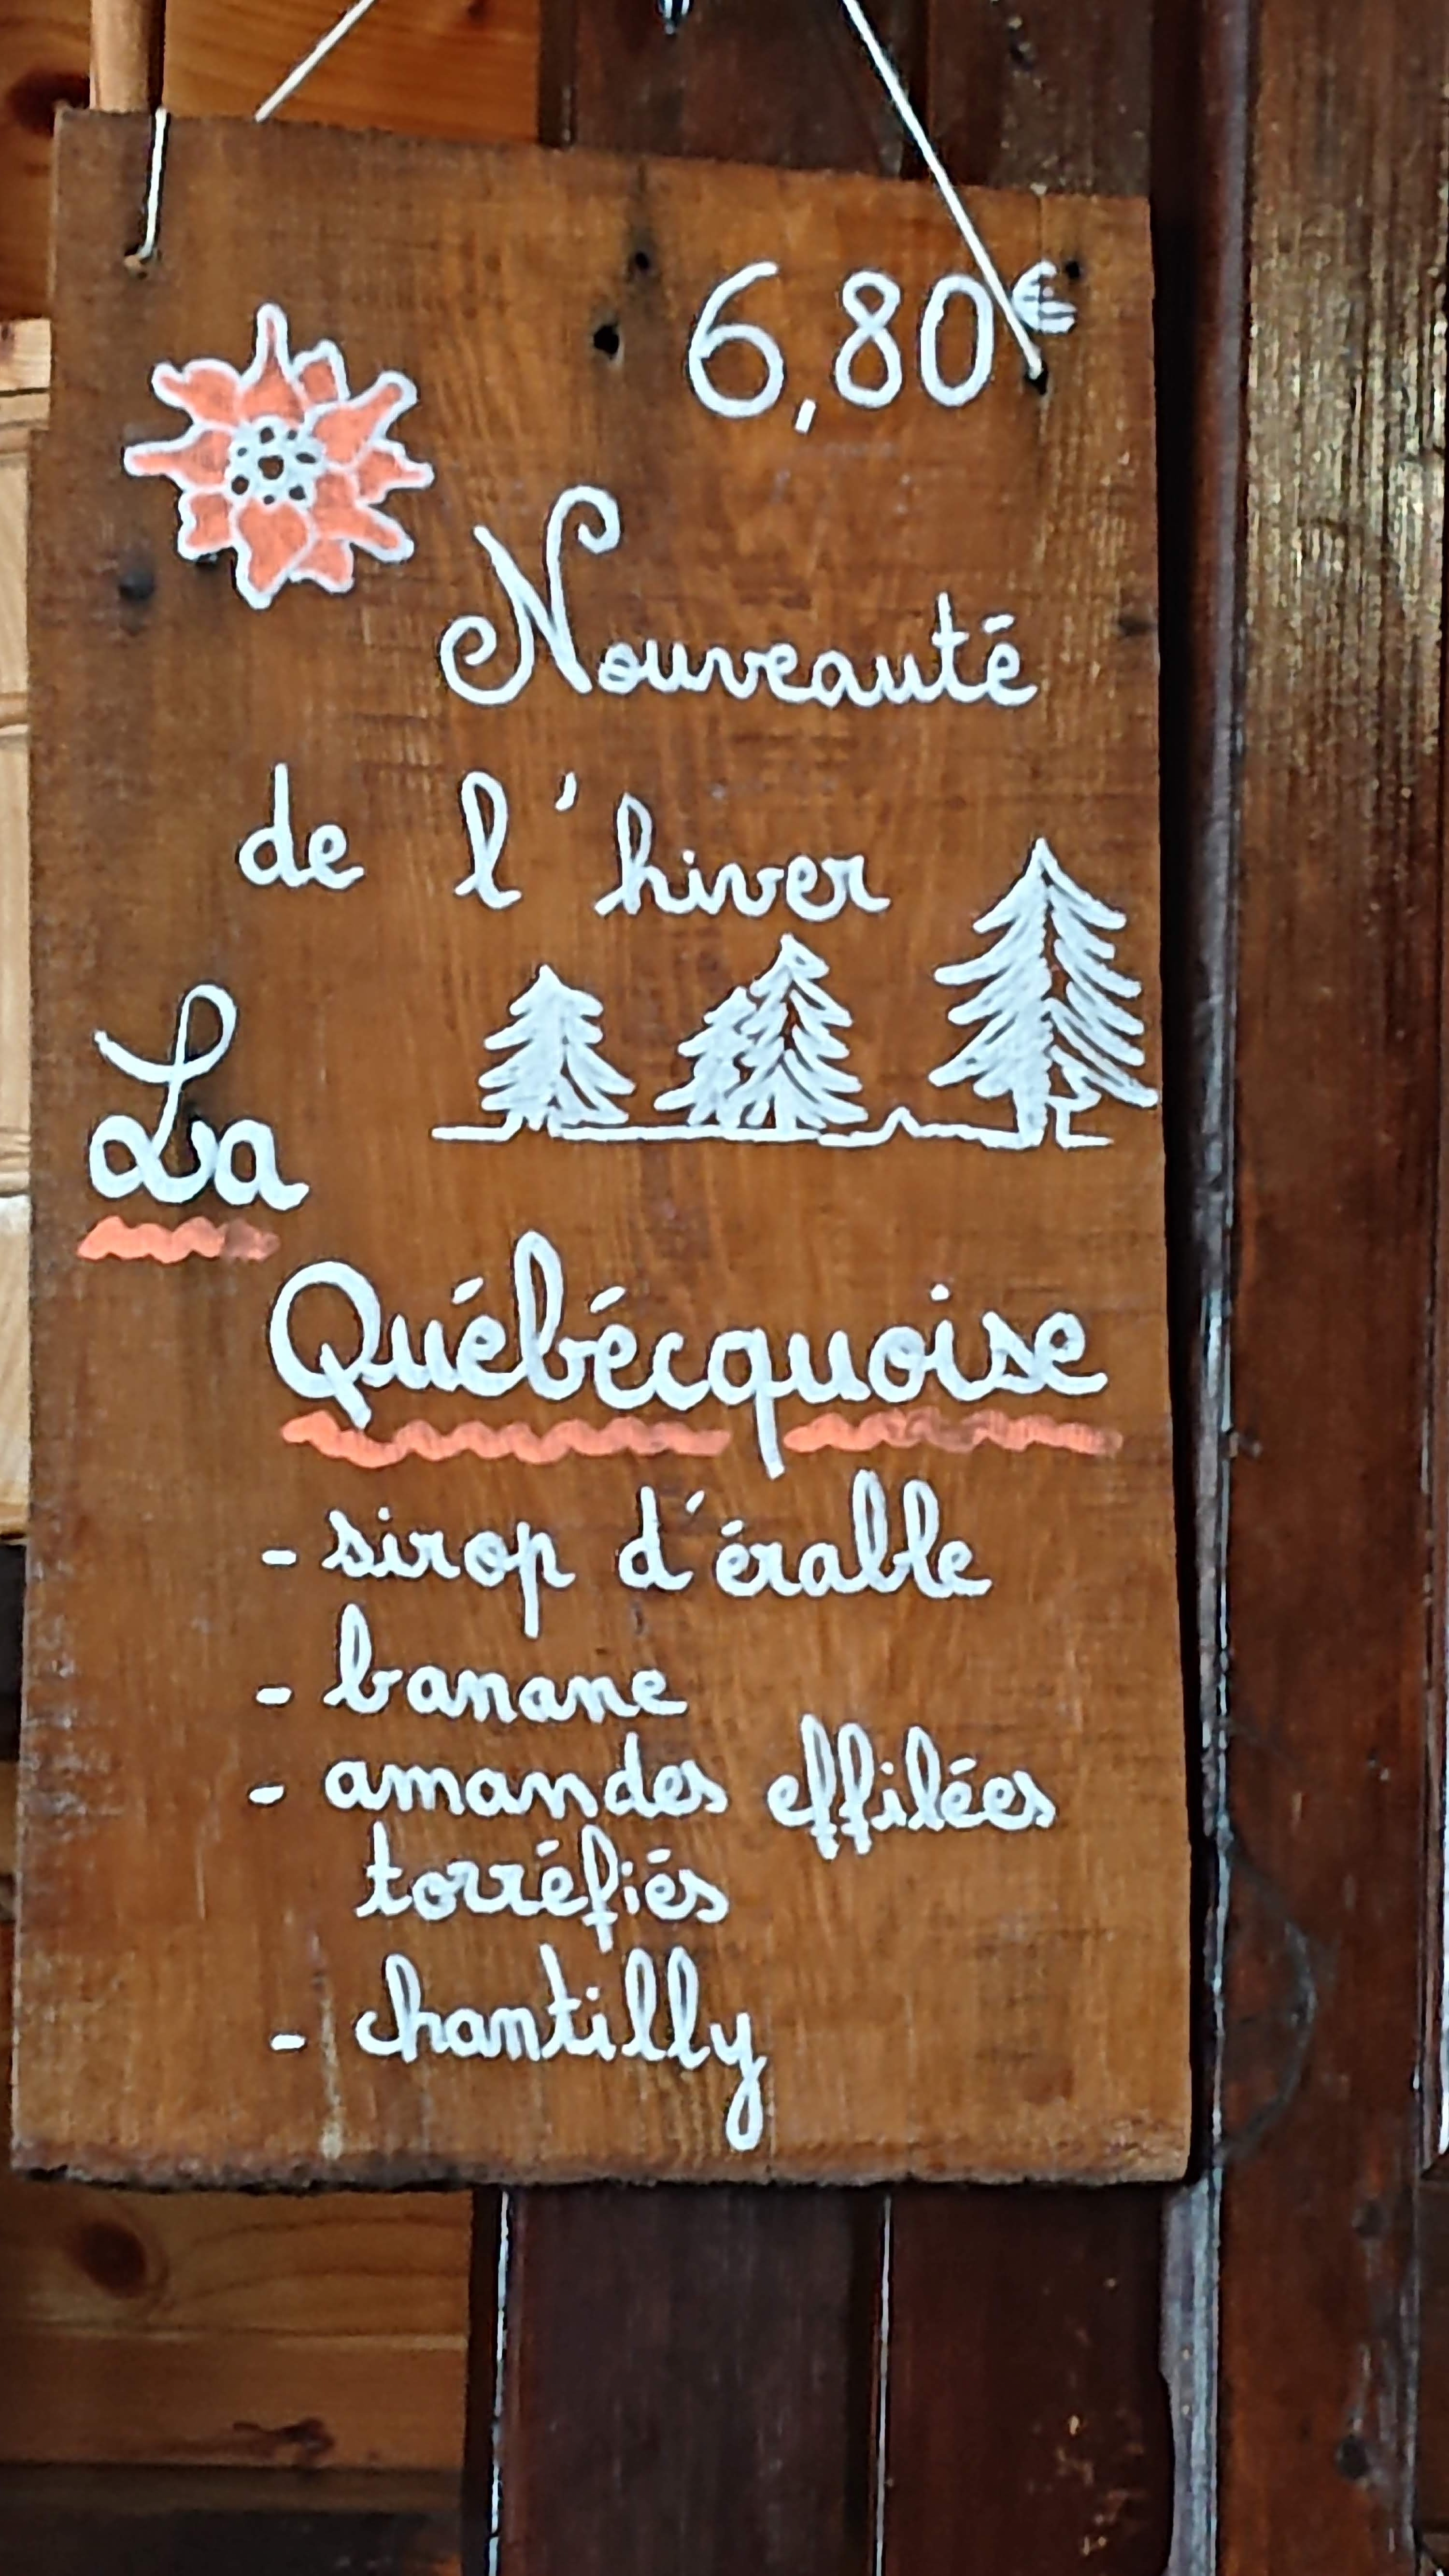 6,80€
Nouveauté
de l'hiver
La
Québécquoise
- sirop d'érable
- banane
- amandes effilées
torréfiés
- chantilly